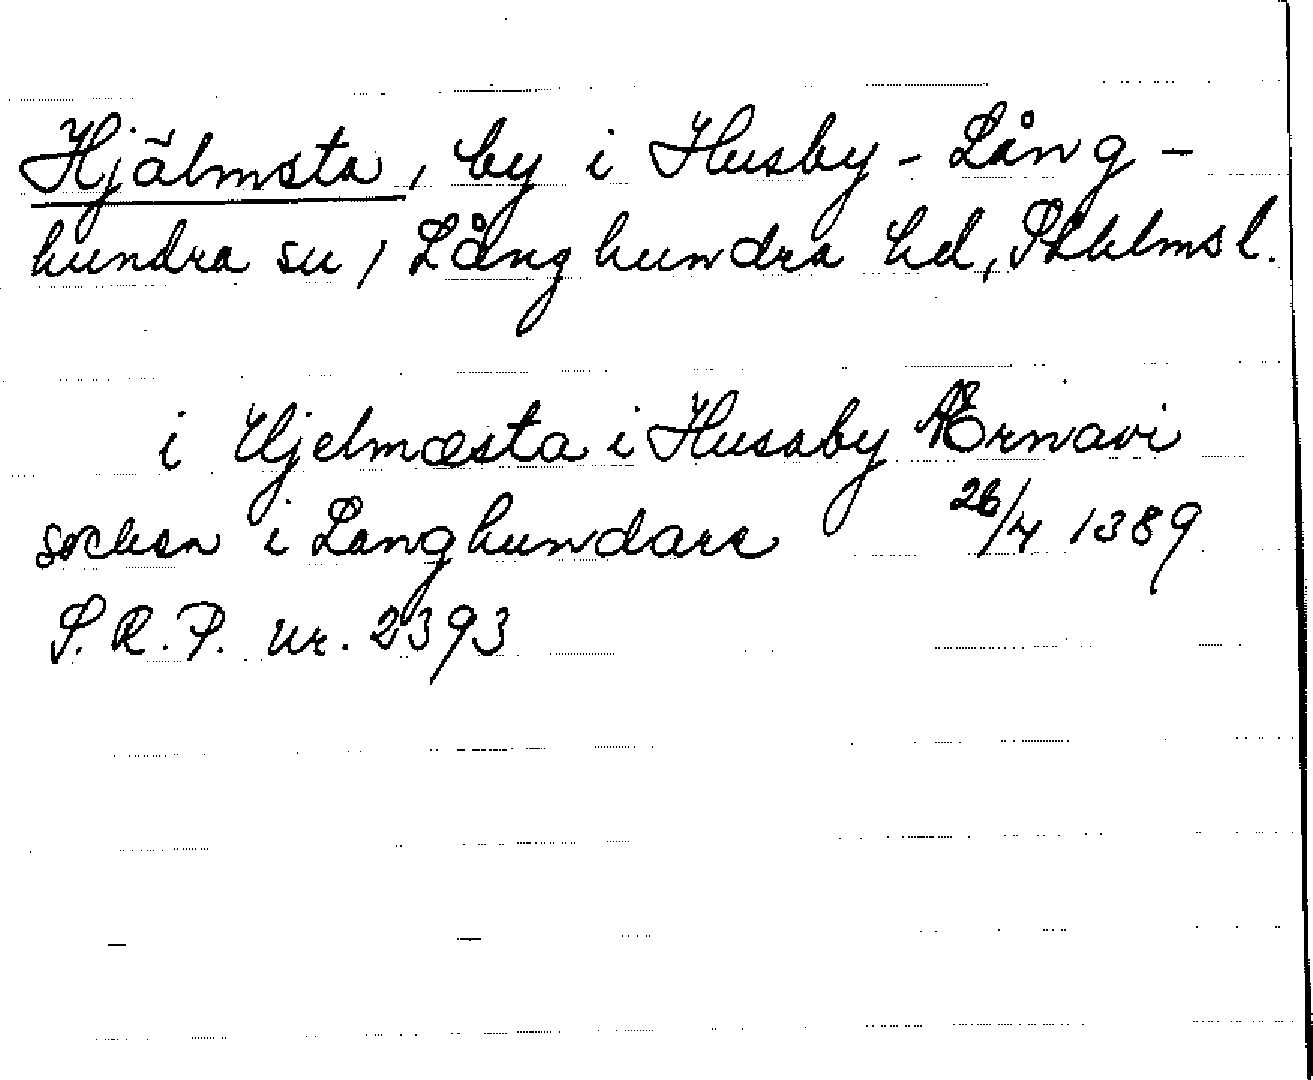 Hjälmsta, by i Husby-Lång-
hundra sn, Långhundra hd, Sthlms l.
i Hjelmæsta i Hussby Ærnavi
socken i Langhundare 26/4 1389
S.R.P. nr. 2393